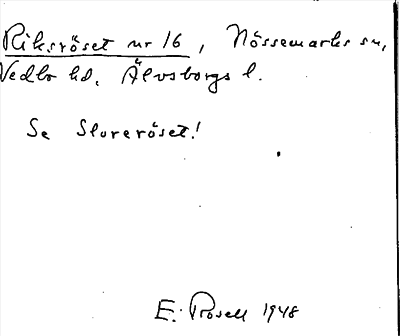 Riksröset nr 16, Nössemarks sn,
Vedbo hd. Älvsborgs l.
Se Slureröset!
E. Rosell 1948